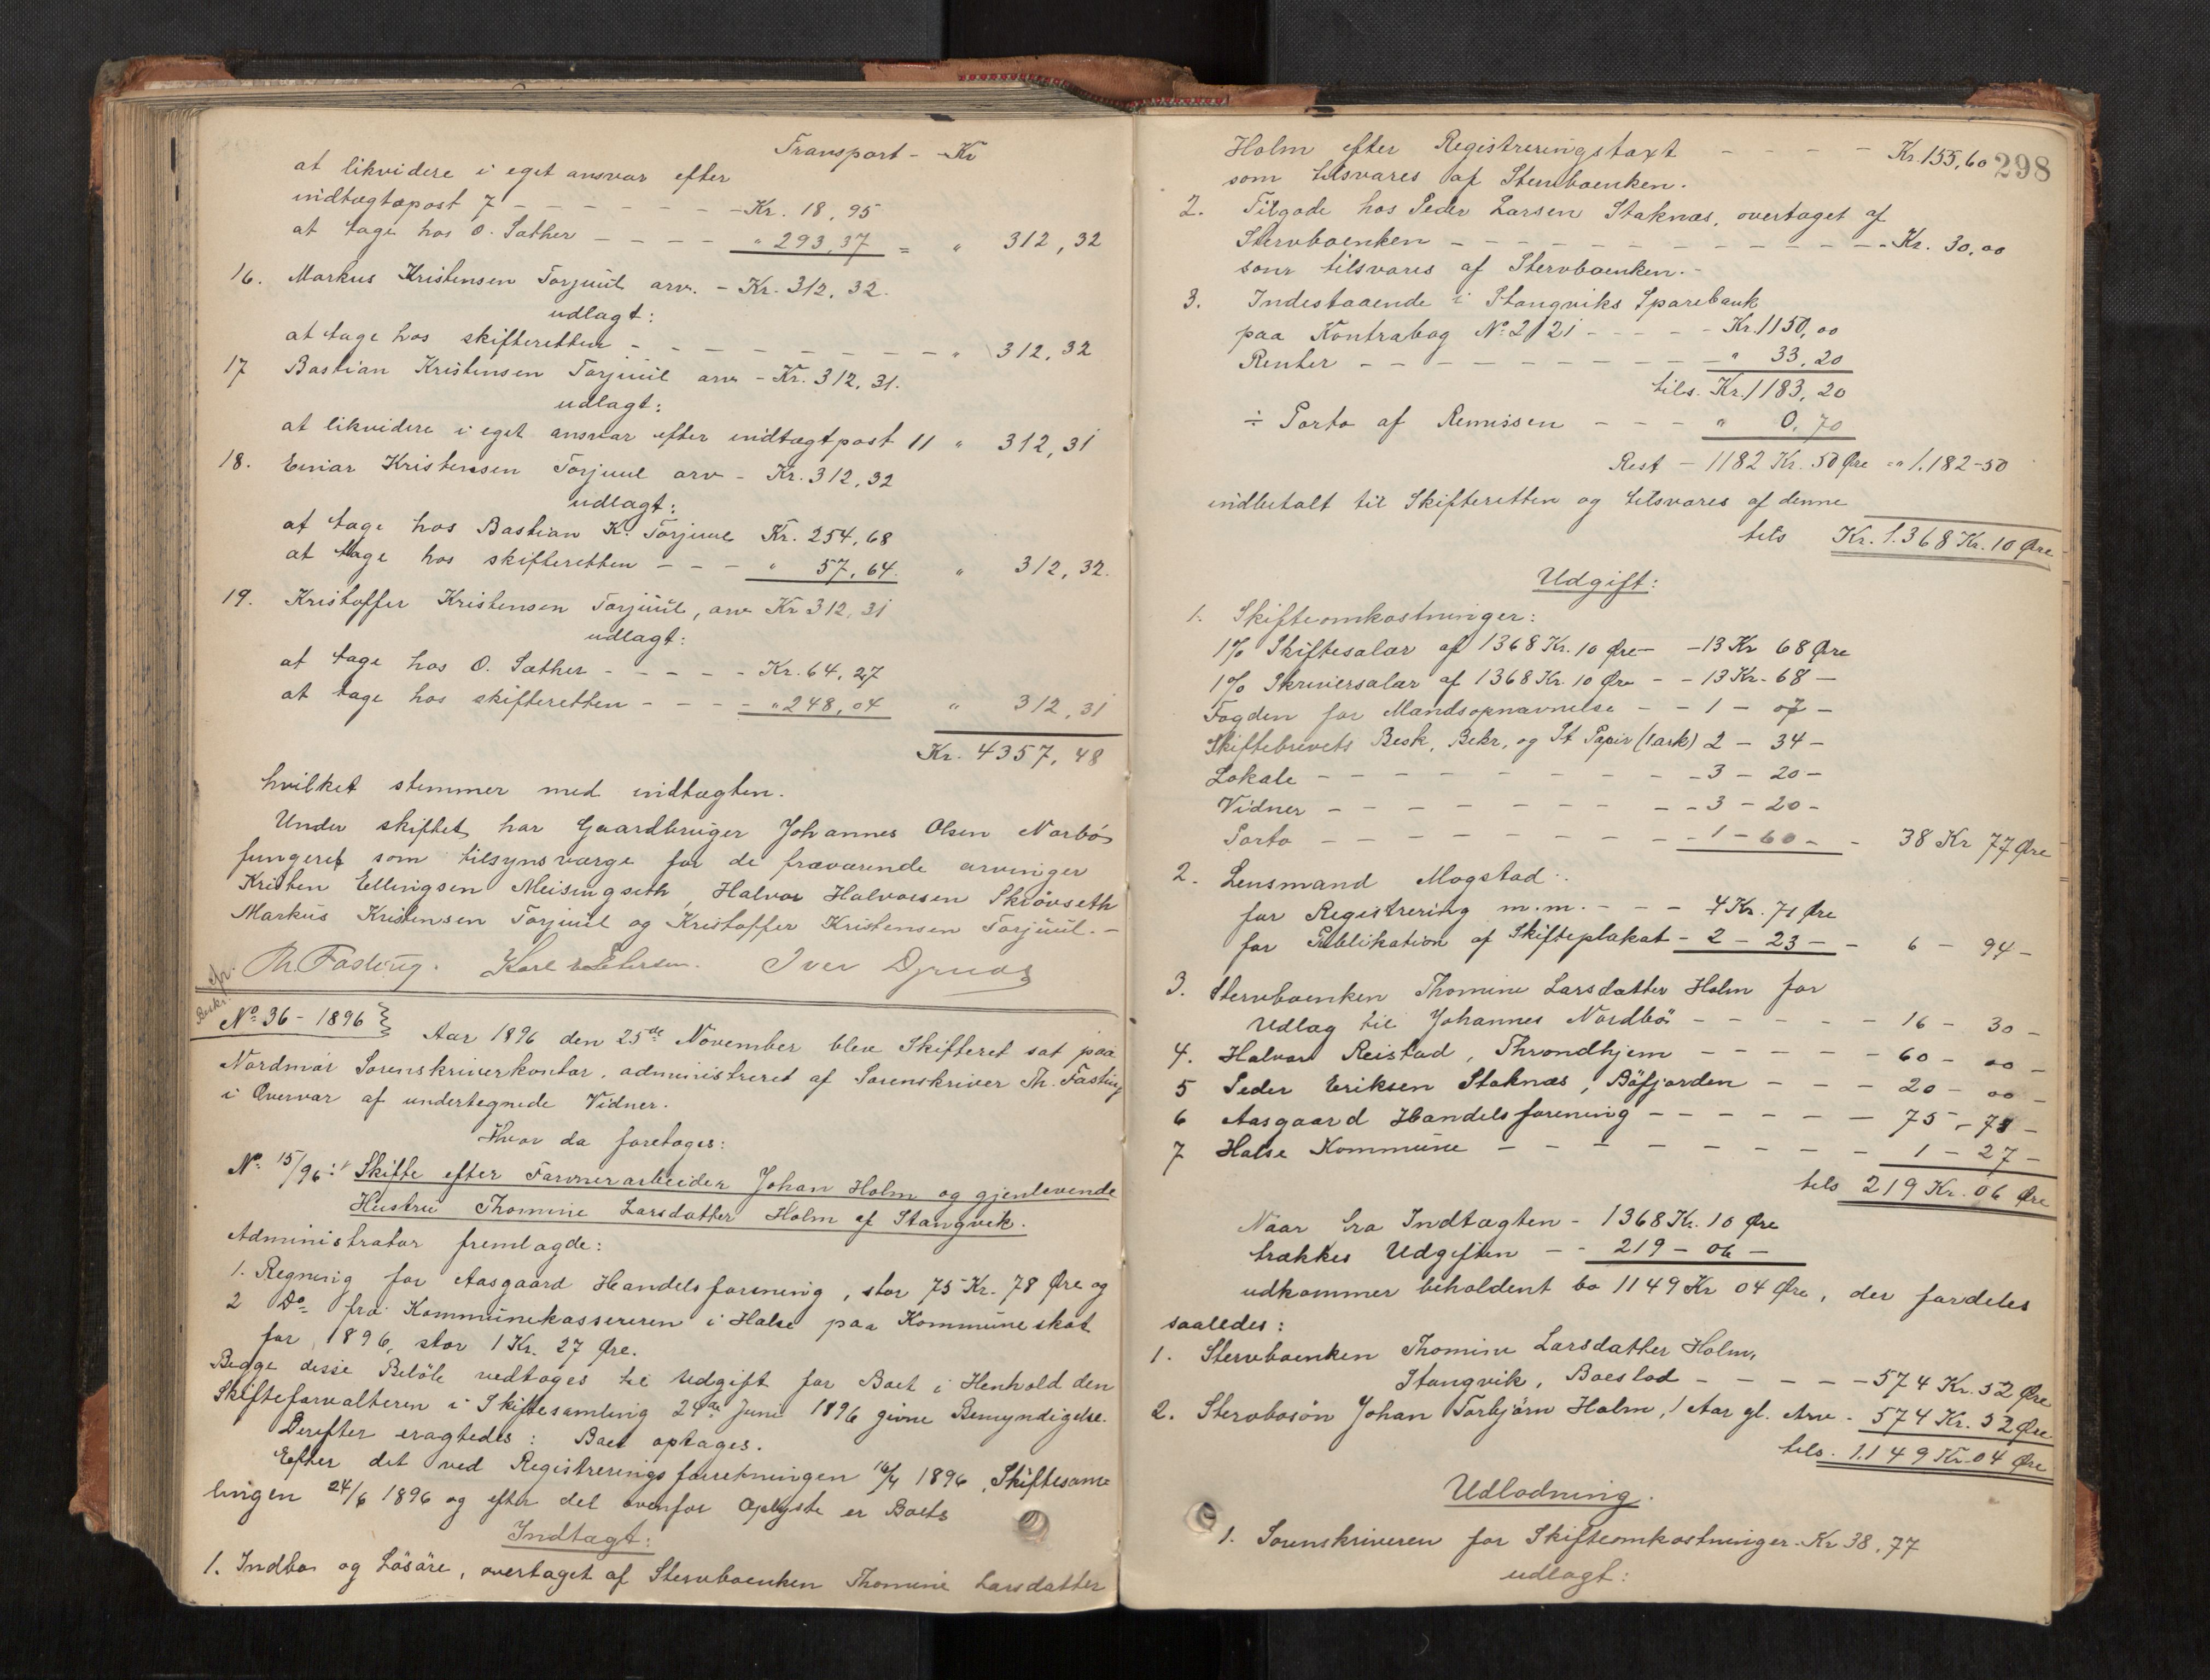 Transport - Kr
at likvidere i eget ansvar efter
indtægtspost 7 - - - - - - Kr. 18,95
at tage hos O. Sæther - - - - " 293,37 = " 312,32
16. Markus Kristensen Torjuul arv. - Kr. 312,32.
udlagt:
at tage hos skifteretten - - - - - - - - " 312,32
17 Bastian Kristensen Torjuul arv - Kr. 312,31.
udlagt:
at likvidere i eget ansvar efter indtægtpost 11 " 312,31
18. Einar Kristensen Torjuul arv - Kr. 312,32
udlagt:
at tage hos Bastian K. Torjuul Kr. 254,68
at tage hos skifteretten - - - " 57,64. " 312,32.
19. Kristoffer Kristensen Torjuul, arv Kr 312,31
udlagt:
at tage hos O. Sæther - - - - - Kr. 64,27
at tage hos skifteretten - - - - " 248,04 " 312,31
Kr. 4357,48
hvilket stemmer med indtægten.
Under skiftet har Gaardbruger Johannes Olsen Norbö
fungeret som tilsynsværge for de fraværende arvinger
Kristen Ellingsen Meisingseth, Halvor Halvorsen Skrövseth
Markus Kristensen Torjuul og Kristoffer Kristensen Torjuul. -
Th. Fasting. Karl Iver
Beskr.
No. 36 - 1896
Aar 1896 den 25de November blev Skifteret sat paa
Nordmør Sorenskriverkontor, administreret af Sorenskriver Th. Fasting
i Overvær af undertegnede Vidner.
Hvor da foretoges:
No. 15/96: Skifte efter Farverarbeider Johan Holm og gjenlevende
Hustru Thomine Larsdatter Holm af Stangvik.
Administrator fremlagde:
1. Regning for Aasgaard Handelsforening, stor 75 Kr. 78 Øre og
2 Do fra Kommunekassereren i Halse paa Kommuneskat
for 1896, stor 1 Kr. 27 Øre.
Begge disse Beløb vedtoges til Udgift for Boet i Henhold den
Skifteforvalteren i Skiftesamling 24de Juni 1896 givne Bemyndigelse.
Derefter eragtedes: Boet optages.
Efter det ved Registreringsforretningen 16/4 1896, Skiftesam-
lingen 24/6 1896 og efter det ovenfor Oplyste er Boets
Indtægt:
1. Indbo og Lösöre, overtaget af Stervboenken Thomine Larsdatter
298
Holm efter Registreringstaxt - - - - Kr. 155,60
som tilsvares af Stervboenken.
2. Tilgode hos Peder Larsen Staknæs, overtaget af
Stervboenken - - - - - - - - - - - - - Kr. 30,00
som tilsvares af Stervboenken. -
3. Indestaaende i Stangviks Sparebank
paa Kontrabog No. 2121 - - - - - Kr. 1150,00
Renter - - - - - - - - - - " 33,20
tils. Kr. 1183,20
÷ Porto af Remissen - - - " 0,70
Rest - 1182 Kr. 50 Øre = " 1.182-50
indbetalt til Skifteretten og tilsvares af denne
tils Kr. 1.368 Kr. 10 Øre
Udgift:
1. Skifteomkostninger:
1% Skiftesalær af 1368 Kr. 10 Øre - - 13 Kr 68 Øre
1% Skriversalær af 1368 Kr. 10 Øre - - 13 Kr - 68 -
Fogden for Mandsopnævnelse - - 1 - 07 -
Skiftebrevets Besk, Bekr, og St Papir (1 ark) 2 - 34 -
Lokale - - - - - - - - - 3 - 20 -
Vidner - - - - - - - - - 3 - 20 -
Porto - - - - - - - - - 1 - 60 - - 38 Kr 77 Øre
2. Lensmand Mogstad..
for Registrering m.m. - - - 4 Kr. 71 Øre
for Publikation af Skifteplakat - 2 - 23 - - 6 - 94 -
3. Stervboenken Thomine Larsdatter Holm for
Udlæg til Johannes Nordbö - - - - - 16 - 30 -
4. Halvor Reistad, Throndhjem - - - - - 60 - 00 -
5 Peder Eriksen Staknæs, Böfjorden - - - 20 - 00 -
6 Aasgaard Handelsforening - - - - - - 75 - 78 -
7 Halse Kommune - - - - - - - - 1 - 27 -
tils 219 Kr. 06 Øre
Naar fra Indtægten - 1368 Kr. 10 Øre
trækkes Udgiften - - 219 - 06 -
udkommer beholdent bo 1149 Kr 04 Øre, der fordeles
saaledes:
1. Stervboenken Thomine Larsdatter Holm,
Stangvik, Boeslod - - - - - 574 Kr. 52 Øre
2. Stervbosön Johan Torbjörn Holm, 1 Aar gl. Arv - 574 Kr. 52 Øre
tils. 1.149 Kr. 04 Øre
Udlodning.
1. Sorenskriveren for Skifteomkostninger - Kr 38,77
udlagt: